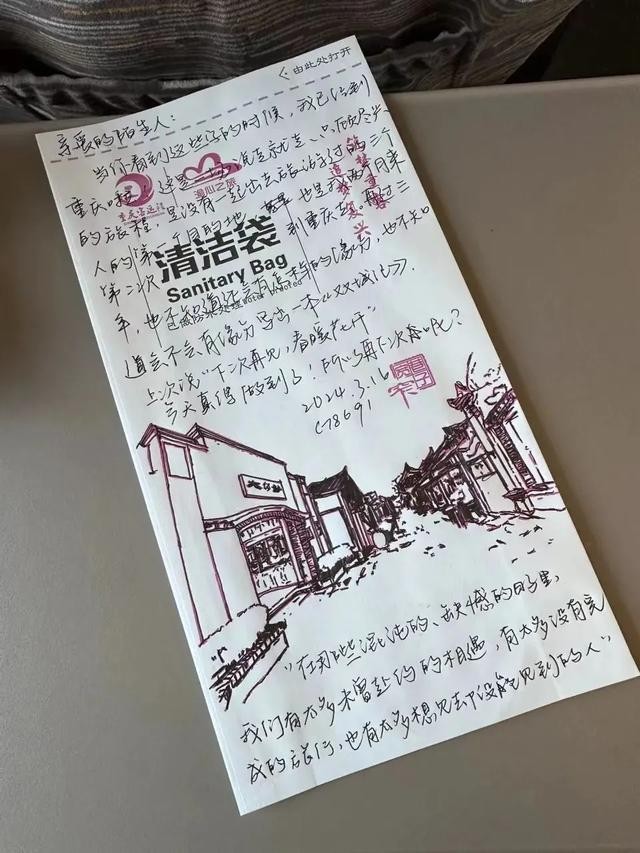 <由此处打开
亲爱的陌生人：
当你看到这些字的时候，我已经到
重庆啦，这是一场说走就走、只顾尽兴、
的旅程，是没有一起出去旅游过的三个
人的第一个目的地，也是我两个月来
第二次到重庆
年，也不知道还会有这样的缘分，也不知
道会不会有缘分写出一本《双城记》.
上次说“下次再见，春暖花开”
今天真得做到了！那么再下次存呢？
2024.3.16
C78691
重庆客运段
漫心之旅
清洁袋
Sanitary Bag
已做防水处理Water proofed
“在那些混沌的、缺憾的日子里，
我们有太多未曾赴约的相遇，有太多没有完
成的旅行，也有太多想见却没能见到的人”